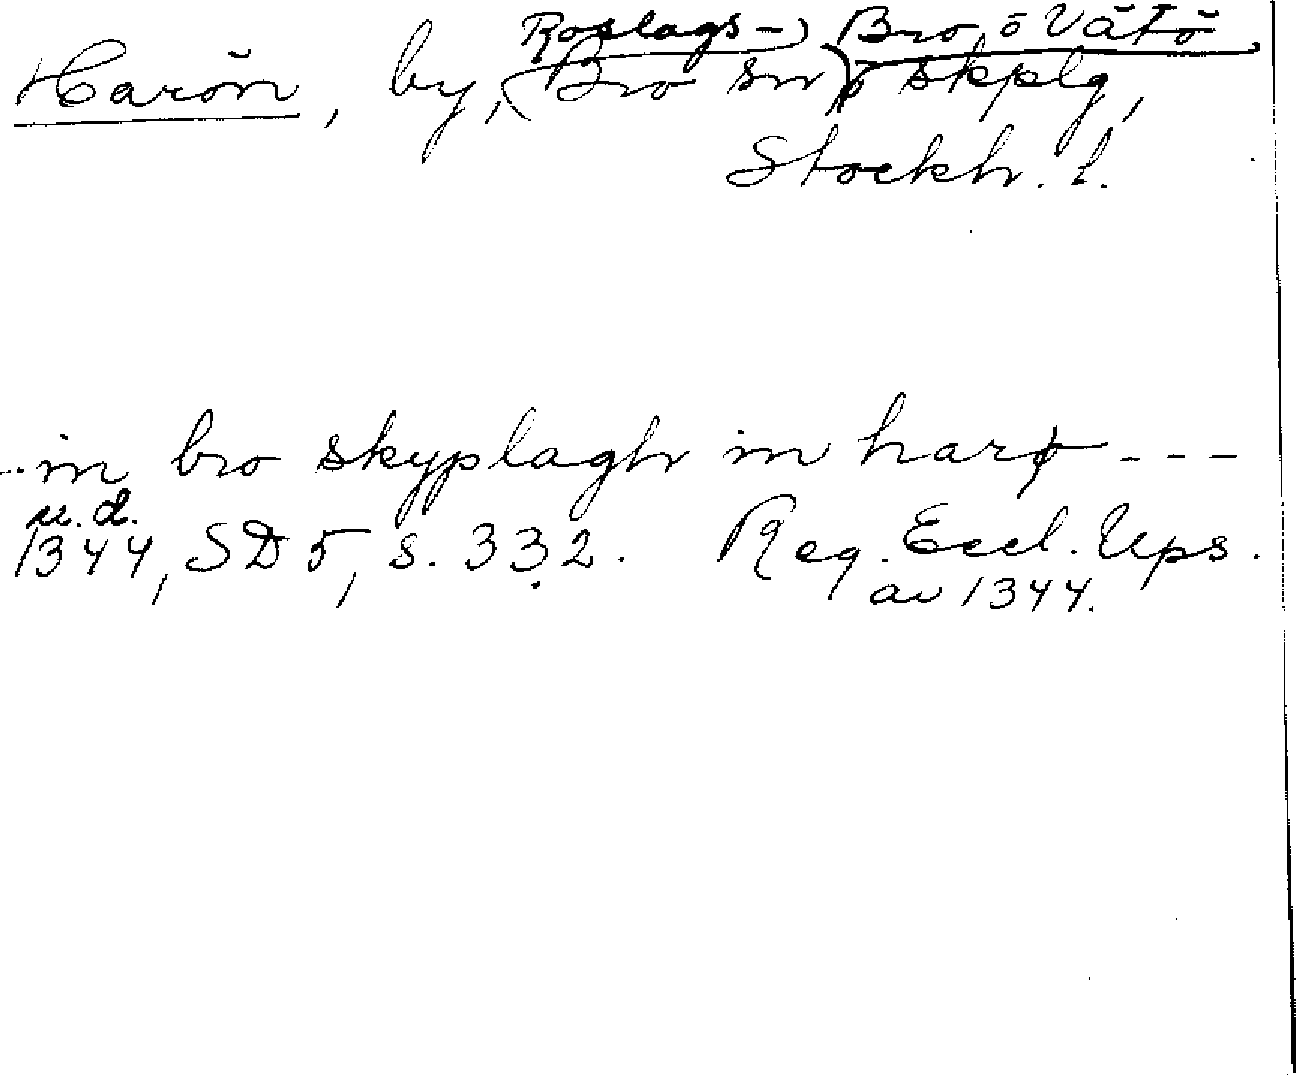 Roslags-) Bro o Vätö
Harön, by, (Bro sn) o skplg,
Stockh. l.
-- in bro skyplagh in harø ---
u.d.
1344, SD 5, s. 332. Reg. Eccl. Ups.
av 1344.